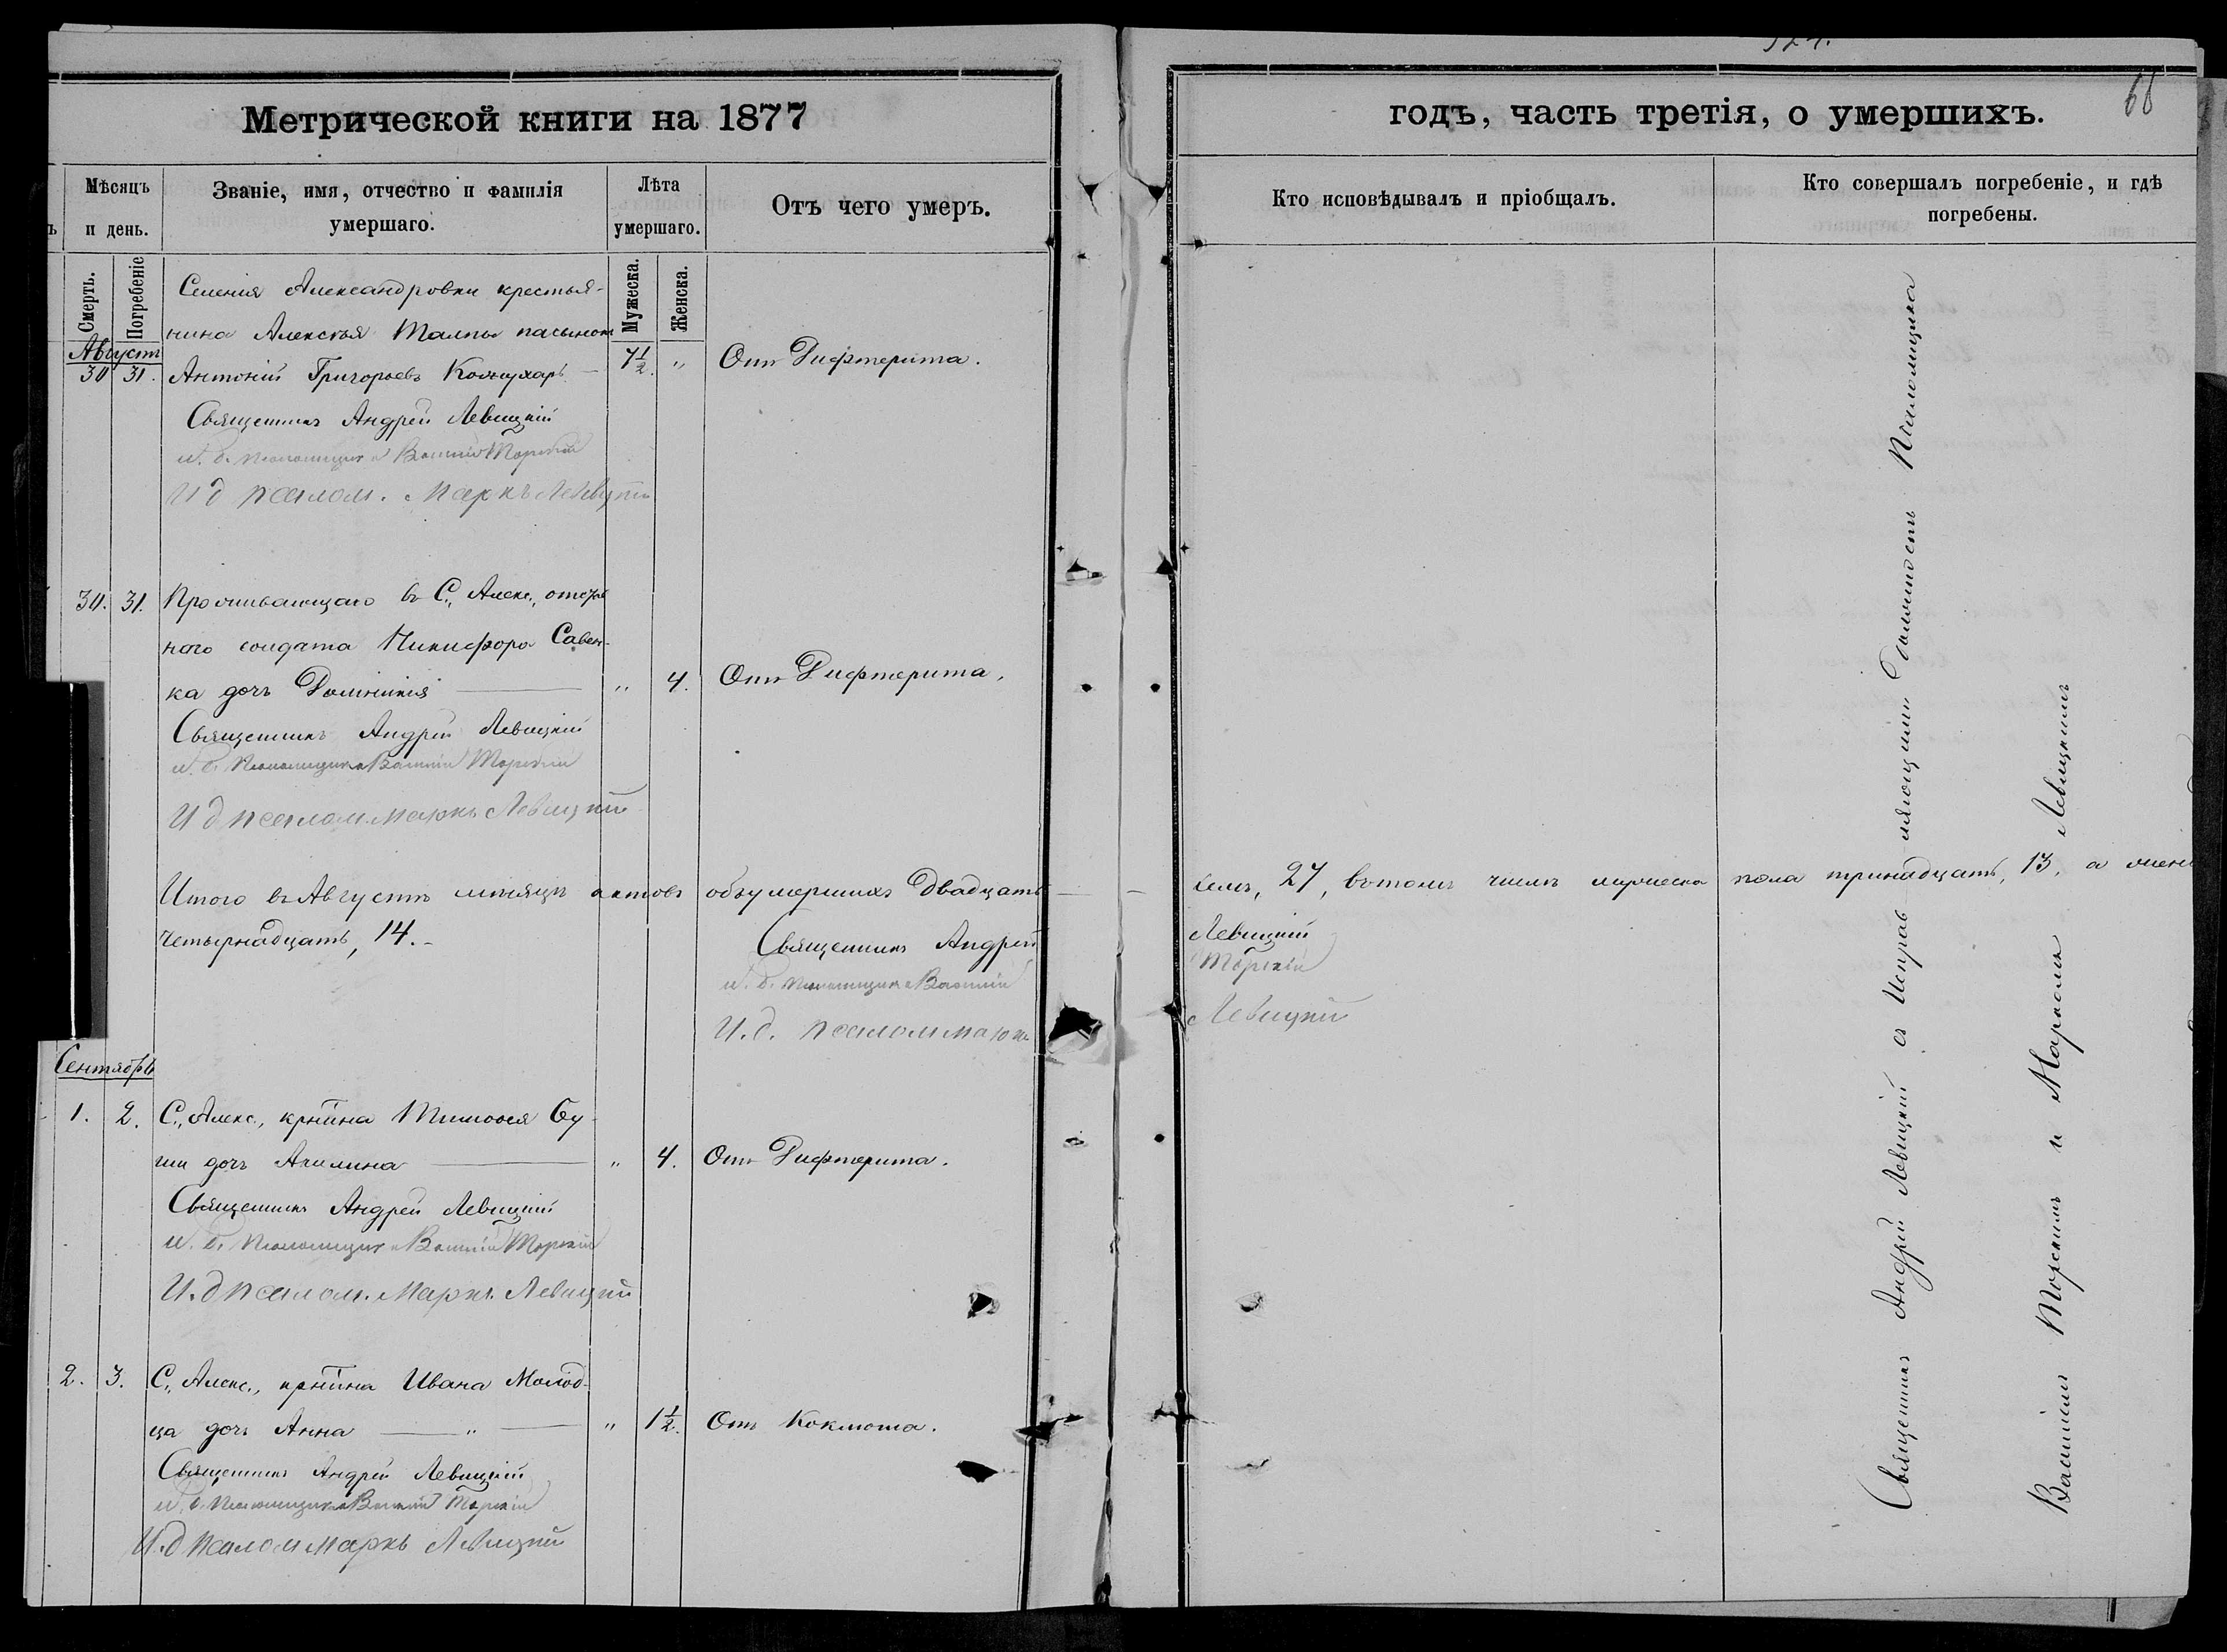 324.
66
Метрической книги на 1877
годъ, часть третія, о умершихъ.
Мѣсяцъ и день.
Званіе, имя, отчество и фамилія умершаго.
Лѣта умершаго.
Отъ чего умеръ.
Кто исповѣдывалъ и пріобщалъ.
Кто совершалъ погребеніе, и гдѣ погребены.
Смерть.
Погребеніе
Мужеска.
Женска.
Августъ
Селенія Александровки крестья-
нина Алексѣя Талпы пасынокъ
30 31. Антоній Григорьевъ — 7½. „ Отъ Дифтерита.
Священникъ Андрей Левицкій
и. д. Псаломщика Василій Торскій
И д псалом. Маркъ Левицкій
30. 31. Проживающаго въ С., Алекс., отстав
ного солдата Никифора Савен-
ка дочь Домникія — „ 4. Отъ Дифтерита.
Священникъ Андрей Левицкій
и. д. Псаломщика Василій Торскій
И д псалом. Маркъ Левицкій
Итого въ Августѣ мѣсяцѣ актовъ объ умершихъ двадцать — семь, 27, въ томъ числѣ мужеска пола тринадцать, 13, а женс
четырнадцать, 14. –
Священникъ Андрей Левицкій
и. д. Псаломщика Василій Торскій
И. д. псалом Маркъ Левицкій
Сентябрь
1. 2. С., Алекс., крѣтина Тимоѳея Бу-
ги дочь Акилина — „ 4. Отъ Дифтерита.
Священникъ Андрей Левицкій
и. д. Псаломщика Василій Торскій
И. д псалом. Маркъ Левицкій
2. 3. С., Алекс., крѣтина Ивана Молод-
ца дочь Анна — „ — „ 1½. Отъ Коклюша.
Священникъ Андрей Левицкій
и. д. Псаломщика Василій Торскій
И. д псалом Маркъ Левицкій
Священникъ Андрей Левицкій съ Исправляющими должность Псаломщика
Василіемъ Торскимъ и Маркомъ Левицкимъ